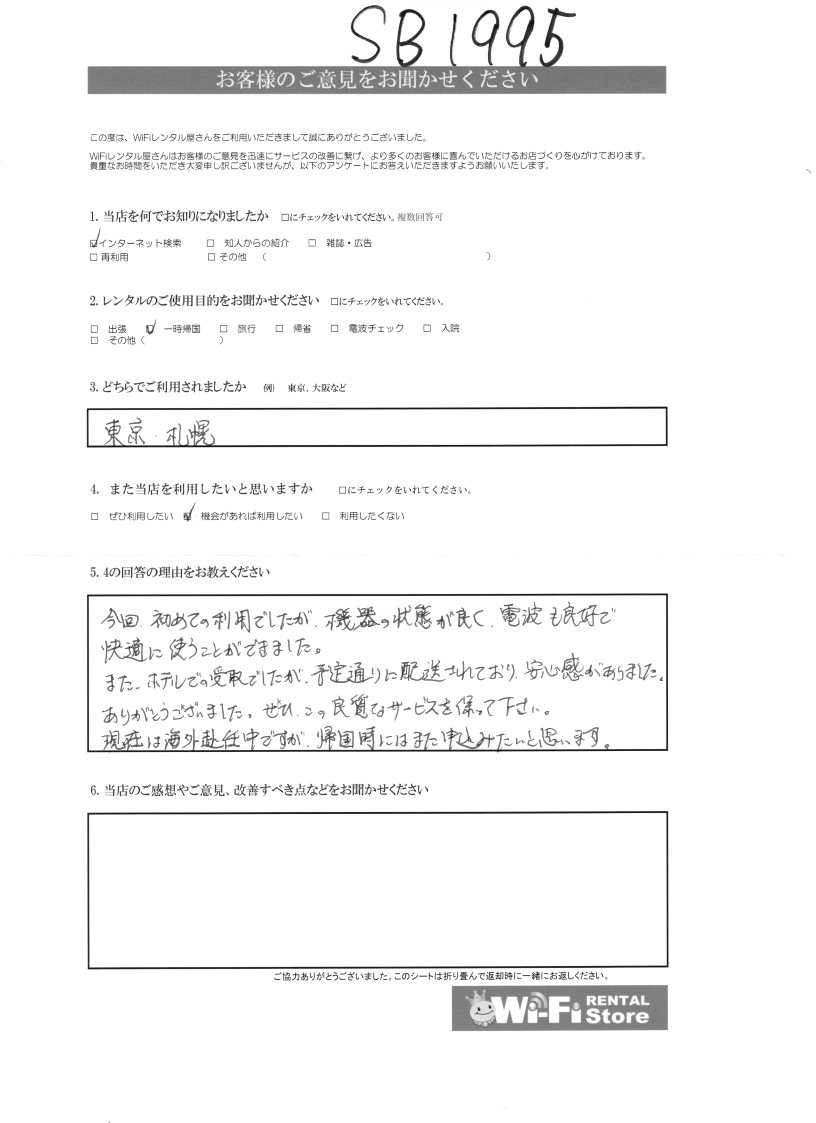 SB1995
お客様のご意見をお聞かせください
この度は、WiFiレンタル屋さんをご利用いただきまして誠にありがとうございました。
WiFiレンタル屋さんはお客様のご意見を迅速にサービスの改善に繋げ、より多くのお客様に喜んでいただけるお店づくりを心がけております。
貴重なお時間をいただき大変申し訳ございませんが、以下のアンケートにお答えいただきますようお願いいたします。
1. 当店を何でお知りになりましたか □にチェックをいれてください。複数回答可
☑インターネット検索 □ 知人からの紹介 □ 雑誌・広告
□ 再利用 □ その他 ( )
2. レンタルのご使用目的をお聞かせください □にチェックをいれてください。
□ 出張 ☑ 一時帰国 □ 旅行 □ 帰省 □ 電波チェック □ 入院
□ その他 ( )
3. どちらでご利用されましたか 例) 東京、大阪など
東京・札幌
4. また当店を利用したいと思いますか □にチェックをいれてください。
□ ぜひ利用したい ☑ 機会があれば利用したい □ 利用したくない
5. 4の回答の理由をお教えください
今回、初めての利用でしたが、機器の状態が良く、電波も良好で
快適に使うことができました。
また、ホテルでの受取でしたが、予定通りに配送されており、安心感がありました。
ありがとうございました。ぜひ、この良質なサービスを保って下さい。
現在は海外赴任中ですが、帰国時にはまた申込みたいと思います。
6. 当店のご感想やご意見、改善すべき点などをお聞かせください
ご協力ありがとうございました。このシートは折り畳んで返却時に一緒にお返しください。
Wi-Fi RENTAL Store